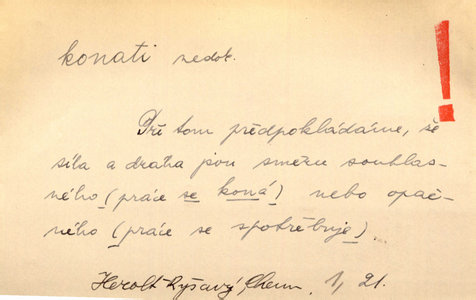 konati nedok.
Při tom předpokládáme, že
síla a dráha jsou směru souhlas-
ného (práce se koná) nebo opač-
ného (práce se spotřebuje).
Herolt Ryšavý, Chem. 1, 21.
!